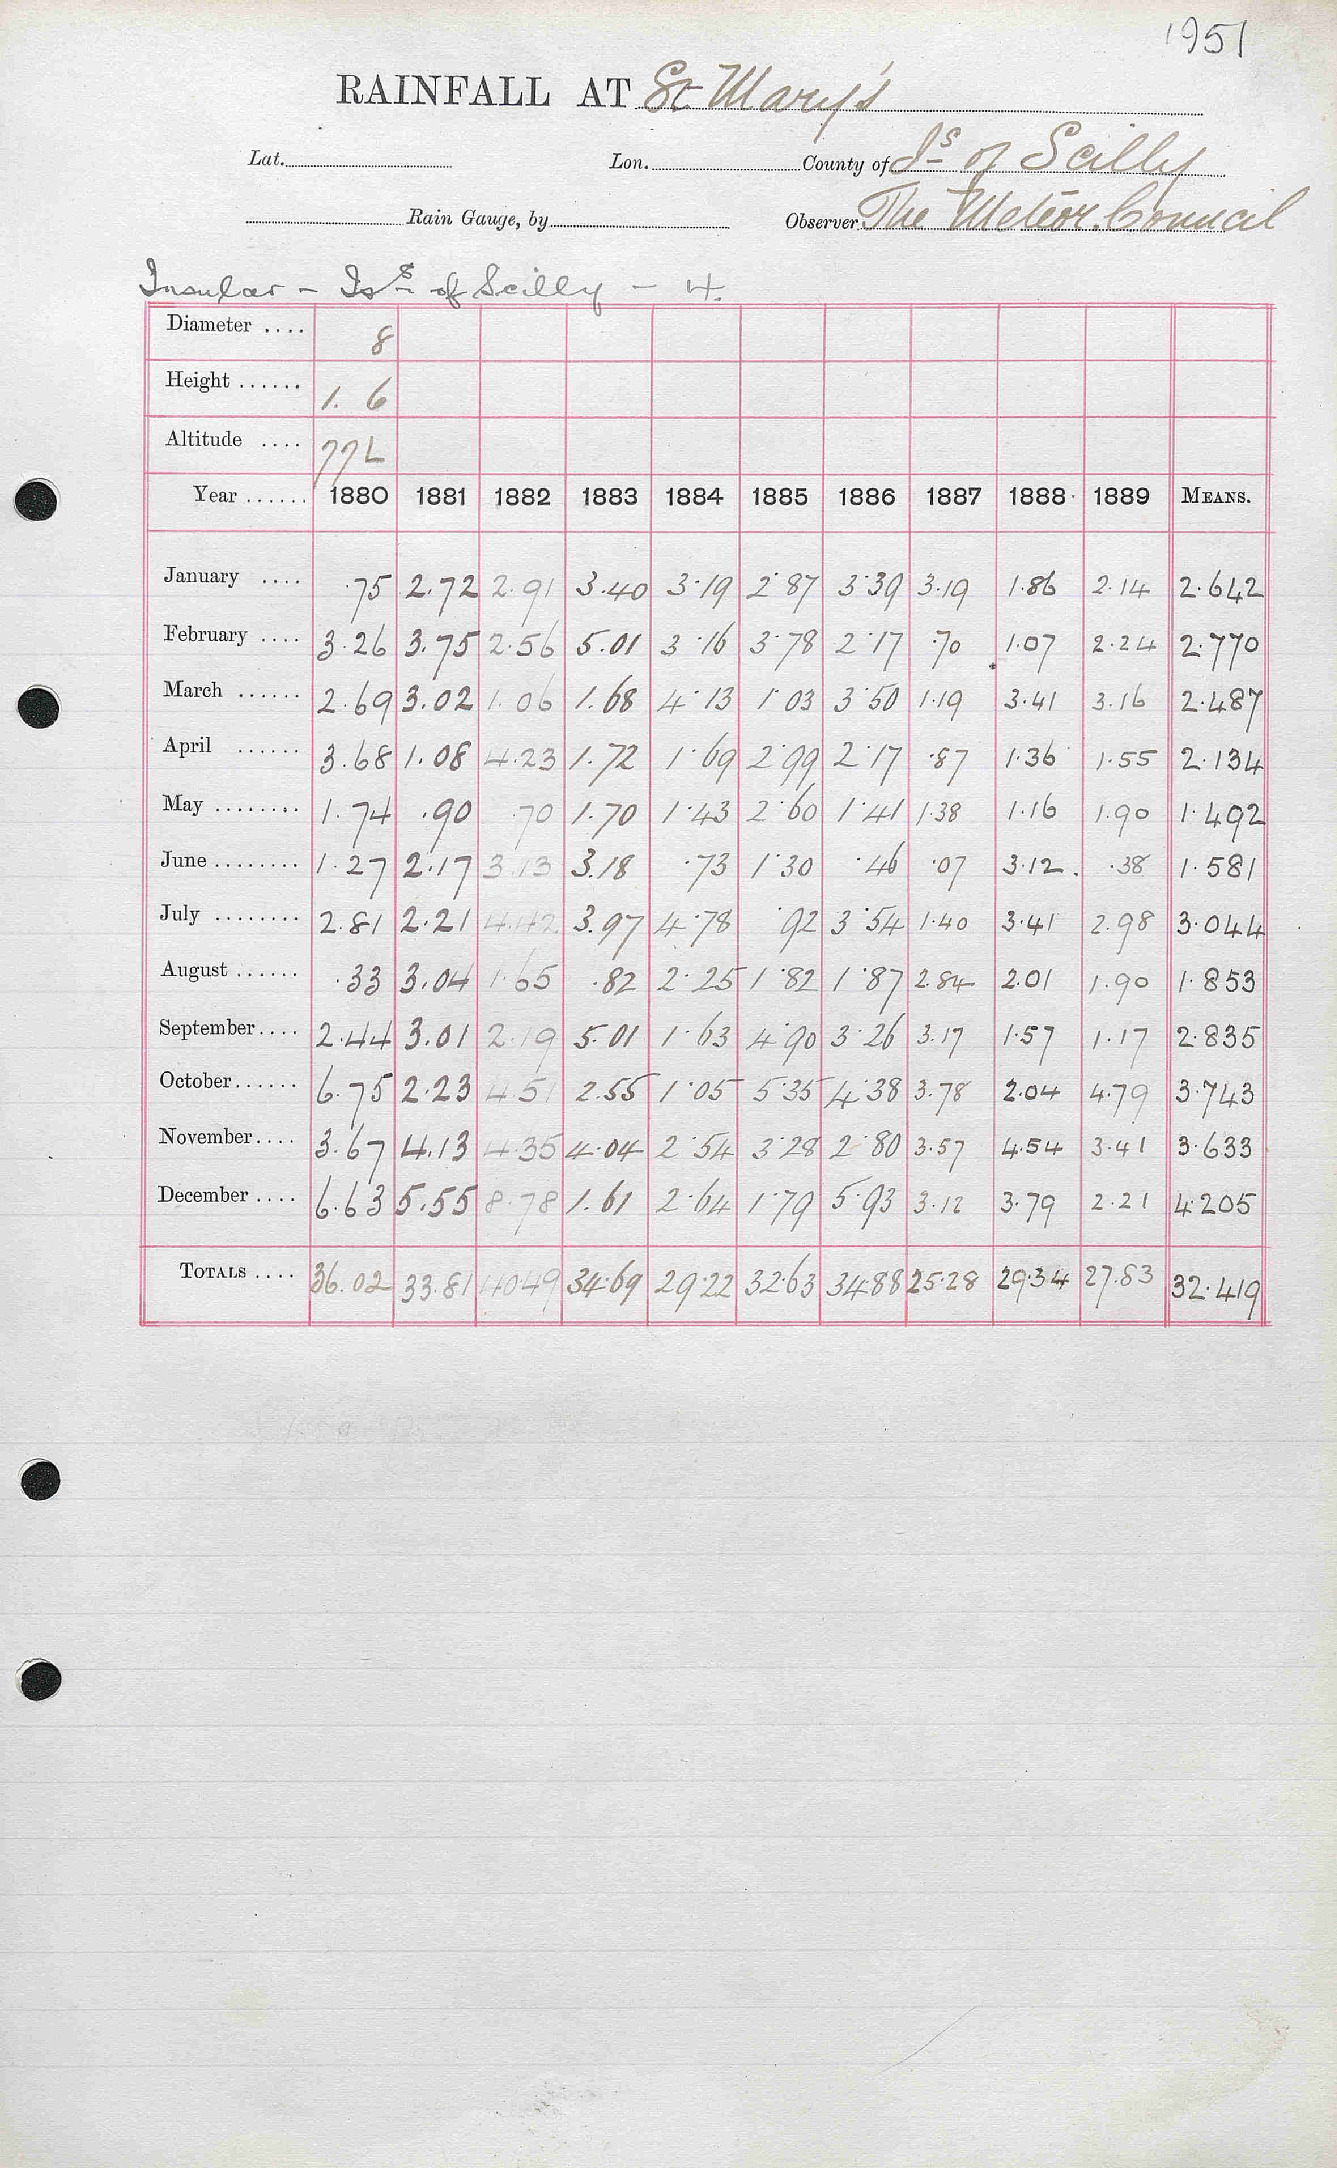 1951
RAINFALL AT St Mary's
Lat. Lon. County of Is of Scilly
Rain Gauge, by Observer The Meteor. Council
Insular - Is s of Scilly - 4.
Diameter .... 8
Height ...... 1. 6
Altitude .... 77L
Year ...... 1880 1881 1882 1883 1884 1885 1886 1887 1888 1889 MEANS.
January .... .75 2.72 2.91 3.40 3.19 2.87 3.39 3.19 1.86 2.14 2.642
February .... 3.26 3.75 2.56 5.01 3.16 3.78 2.17 .70 1.07 2.24 2.770
March ...... 2.69 3.02 1.06 1.68 4.13 1.03 3.50 1.19 3.41 3.16 2.487
April ...... 3.68 1.08 4.23 1.72 1.69 2.99 2.17 .87 1.36 1.55 2.134
May ........ 1.74 .90 .70 1.70 1.43 2.60 1.41 1.38 1.16 1.90 1.492
June ........ 1.27 2.17 3.13 3.18 .73 1.30 .46 .07 3.12. .38 1.581
July ........ 2.81 2.21 4.42 3.97 4.78 .92 3.54 1.40 3.41 2.98 3.044
August ...... .33 3.04 1.65 .82 2.25 1.82 1.87 2.84 2.01 1.90 1.853
September.... 2.44 3.01 2.19 5.01 1.63 4.90 3.26 3.17 1.57 1.17 2.835
October...... 6.75 2.23 4.51 2.55 1.05 5.35 4.38 3.78 2.04 4.79 3.743
November.... 3.67 4.13 4.35 4.04 2.54 3.28 2.80 3.57 4.54 3.41 3.633
December .... 6.63 5.55 8.78 1.61 2.64 1.79 5.93 3.12 3.79 2.21 4.205
TOTALS .... 36.02 33.81 40.49 34.69 29.22 32.63 34.88 25.28 29.34 27.83 32.419